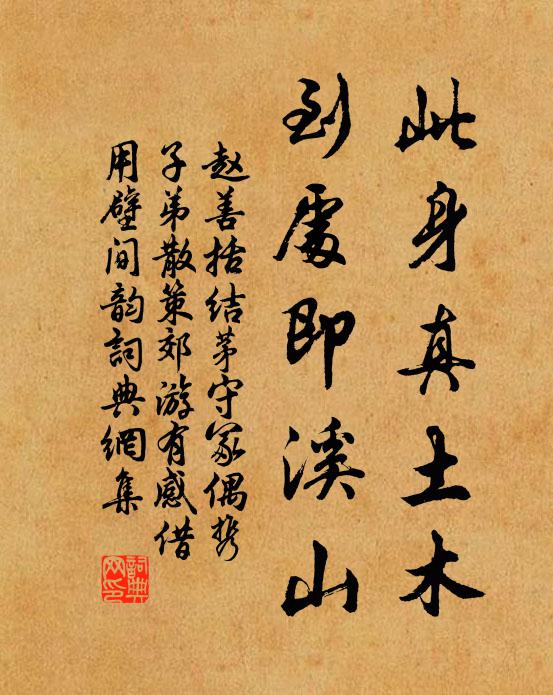 此身真土木
到處即溪山
赵善括结茅守冢偶携
子弟散策郊游有感借
用壁间韵詞典網集
詞典网印